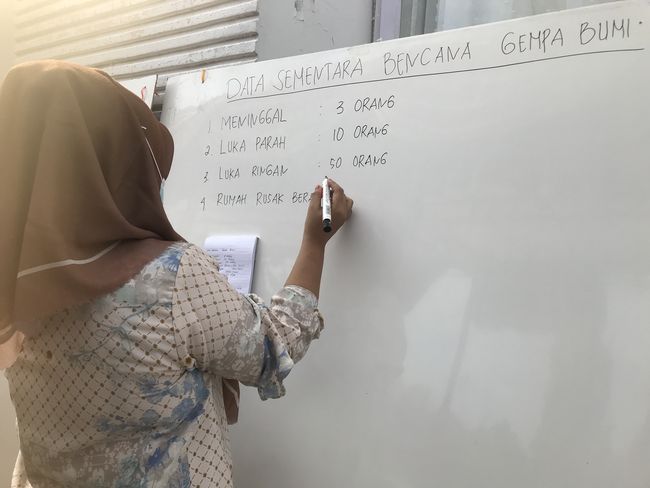 DATA SEMENTARA BENCANA GEMPA BUMI.
1. MENINGGAL : 3 ORANG
2. LUKA PARAH : 10 ORANG
3. LUKA RINGAN : 50 ORANG
4. RUMAH RUSAK